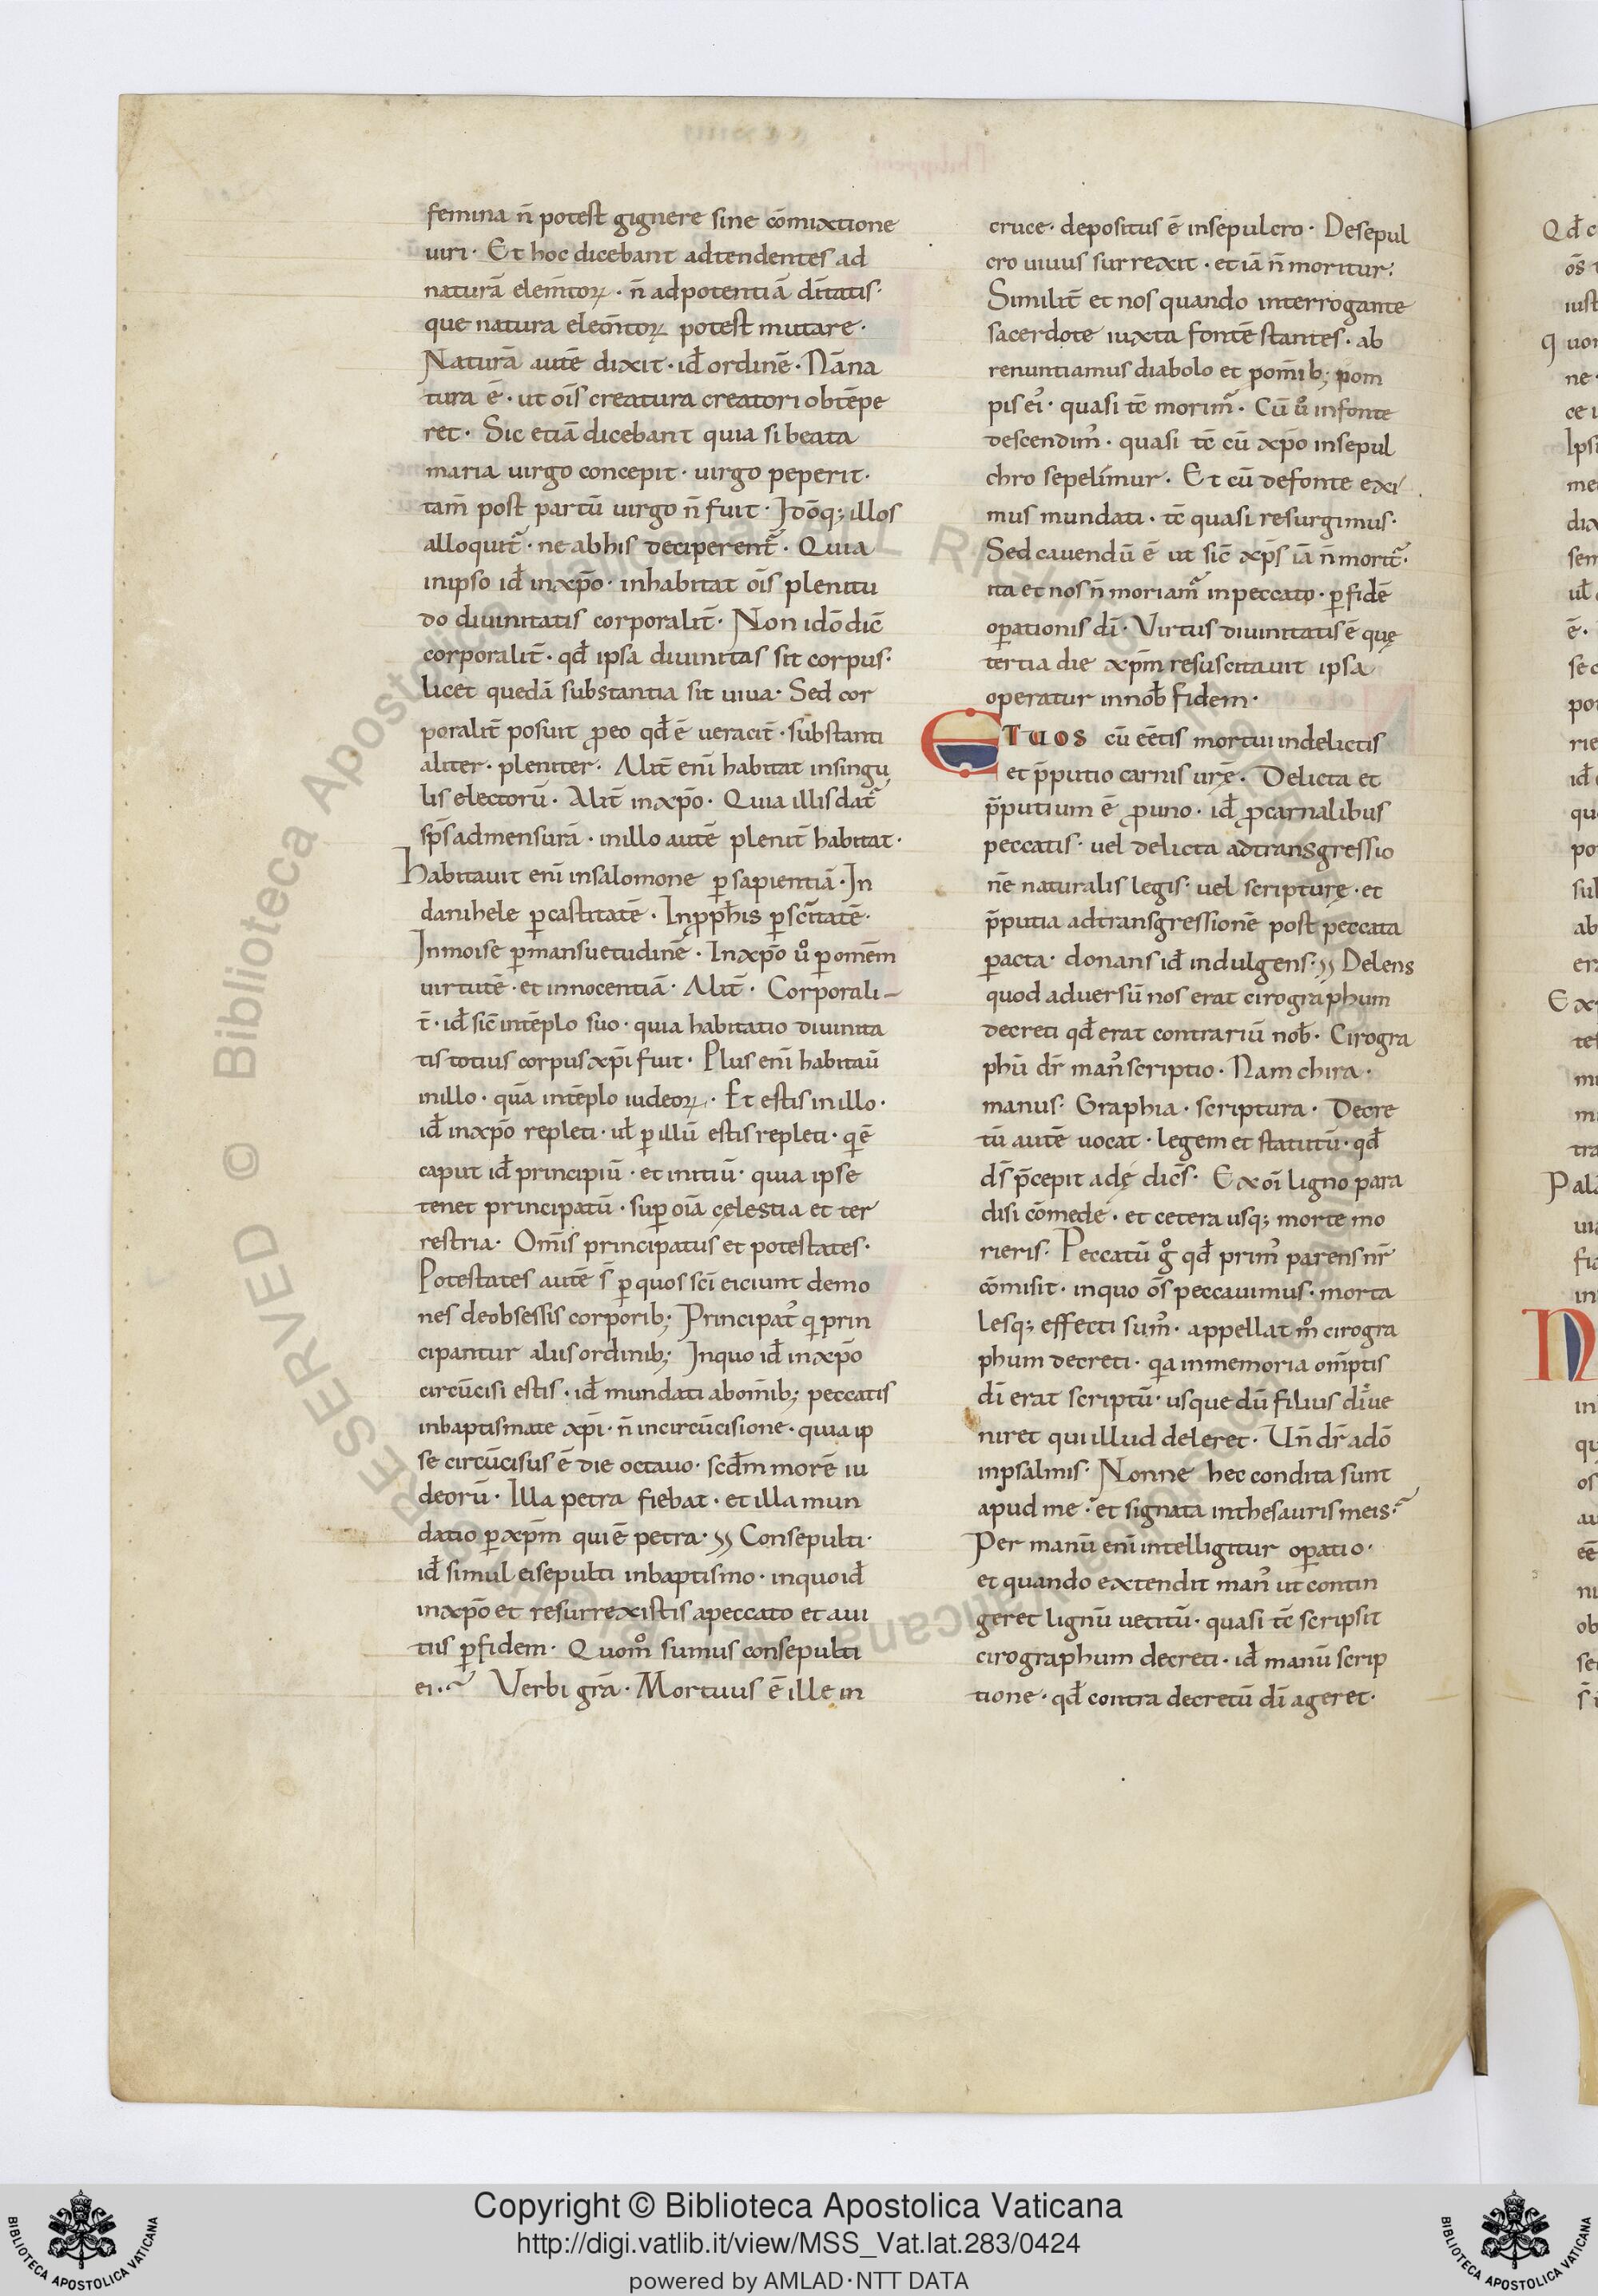 femina n̄ potest gignere sine cōmixtione
uiri· Et hoc dicebant adtendentes ad
naturā elem̄torꝝ· n̄ adpotentiā dīn̄tatis·
que natura elem̄torꝝ potest mutare·
Naturā autē dixit· id̄ ordinē· Nā na
tura ē· ut oīs creatura creatori obtēpe
ret· Sic etiā dicebant quia si beata
maria uirgo concepit· uirgo peperit·
tam̄ post partū uirgo n̄ fuit· Idōq; illos
alloquit̄· ne abhis deciperent̄· Quia
inipso id̄ inxp̄o· inhabitat oīs plenitu
do diuinitatis corporalit̄· Non idō dic̄
corporalit̄· qd̄ ipsa diuinitas sit corpus·
licet quedā substantia sit uiua· Sed cor
poralit̄ posuit ꝓeo qd̄ ē ueracit̄· substanti
aliter· pleniter· Alit̄ enī habitat insingu
lis electorū· Alit̄ inxp̄o· Quia illis dat̄
sp̄s admensurā· inillo autē plenit̄ habitat·
Habitauit enī insalomone ꝑ sapientiā· In
danihele ꝑ castitatē· Inꝓph̄is ꝑ sc̄itatē·
Inmoise ꝑ mansuetudinē· Inxp̄o ů ꝑ omēm
uirtutē· et innocentiā· Alit̄· Corporali-
t̄· id̄ sic̄ intēplo suo· quia habitatio diuinita
tis totius corpus xp̄i fuit· Plus enī habitaū
inillo· quā intēplo iudeorꝝ· Et estis inillo·
id̄ inxp̄o repleti· ul̄ ꝑ illū estis repleti· qi ē
caput id̄ principiū· et initiū· quia ipse
tenet principatū· suꝑ oīa cęlestia et ter
restria· Om̄is principatus et potestates·
Potestates autē s̄ ꝑ quos sc̄i eiciunt demo
nes deobsessis corporib; Principat᾽ qi prin
cipantur aliis ordinib; Inquo id̄ inxp̄o
circūcisi estis· id̄ mundati abom̄ib; peccatis
inbaptismate xp̄i· n̄ incircūcisione· quia ip
se circūcisus ē die octauo· scd̄m morē iu
deorū· Illa petra fiebat· et illa mun
datio ꝑ xp̄m qui ē petra· Consepulti·
id̄ simul ei sepulti inbaptismo· inquo id̄
inxp̄o et resurrexistis apeccato et aui
tiis ꝑ fidem· Quom̊ sumus consepulti
ei· Verbi grā· Mortuus ē ille in
cruce· depositus ē insepulcro· Desepul
cro uiuus surrexit· et iā n̄ moritur·
Similit̄ et nos quando interrogante
sacerdote iuxta fontē stantes· ab
renuntiamus diabolo et pom̄ib; pom
pis ei᾽· quasi tc̄ morim᾽· Cū ů infonte
descendim᾽· quasi tc̄ cū xp̄o insepul
chro sepelimur· Et cū defonte exi
mus mundati· tc̄ quasi resurgimus·
Sed cauendū ē ut sic̄ xp̄s iā n̄ morit̄·
ita et nos n̄ moriam̄ inpeccato· ꝑ fidē
oꝑationis dī· Virtus diuinitatis ē quę
tertia die xp̄m resuscitauit ipsa
operatur innob̄ fidem·
ET uos cū eētis mortui indelictis
et p̄putio carnis ur̄ę· Delicta et
p̄putium ē ꝓ uno· id̄ ꝓ carnalibus
peccatis· uel delicta adtransgressio
nē naturalis legis· uel scripturę· et
p̄putia adtransgressionē post peccata
ꝑacta· donans id̄ indulgens· Delens
quod aduersū nos erat cirographum
decreti qd̄ erat contrariū nob̄· Cirogra
phū dr̄ man᾽scriptio· Nam chira·
manus· Graphia· scriptura· Decre
tū autē uocat· legem et statutū· qd̄
ds̄ p̄cepit adę dic̄s· Ex oī ligno para
disi cōmede· et cetera usq; morte mo
rieris· Peccatū g̊ qd̄ prim᾽ parens nr̄
cōmisit· inquo ōs peccauimus· morta
lesq; effecti sum᾽· appellat m̊ cirogra
phum decreti· qa inmemoria om̄iptis
dī erat scriptū· usque dū filius dī ue
niret qui illud deleret· Un̄ dr̄ adō
inpsalmis· Nonne hec condita sunt
apud me· et signata inthesauris meis·
Per manū enī intelligitur oꝑatio·
et quando extendit man᾽ ut contin
geret lignū uetitū· quasi tc̄ scripsit
cirographum decreti· id̄ manū scrip
tione· qd̄ contra decretū dī ageret·
Copyright © Biblioteca Apostolica Vaticana
http://digi.vatlib.it/view/MSS_Vat.lat.283/0424
powered by AMLAD·NTT DATA
BIBLIOTECA APOSTOLICA VATICANA
BIBLIOTECA APOSTOLICA VATICANA